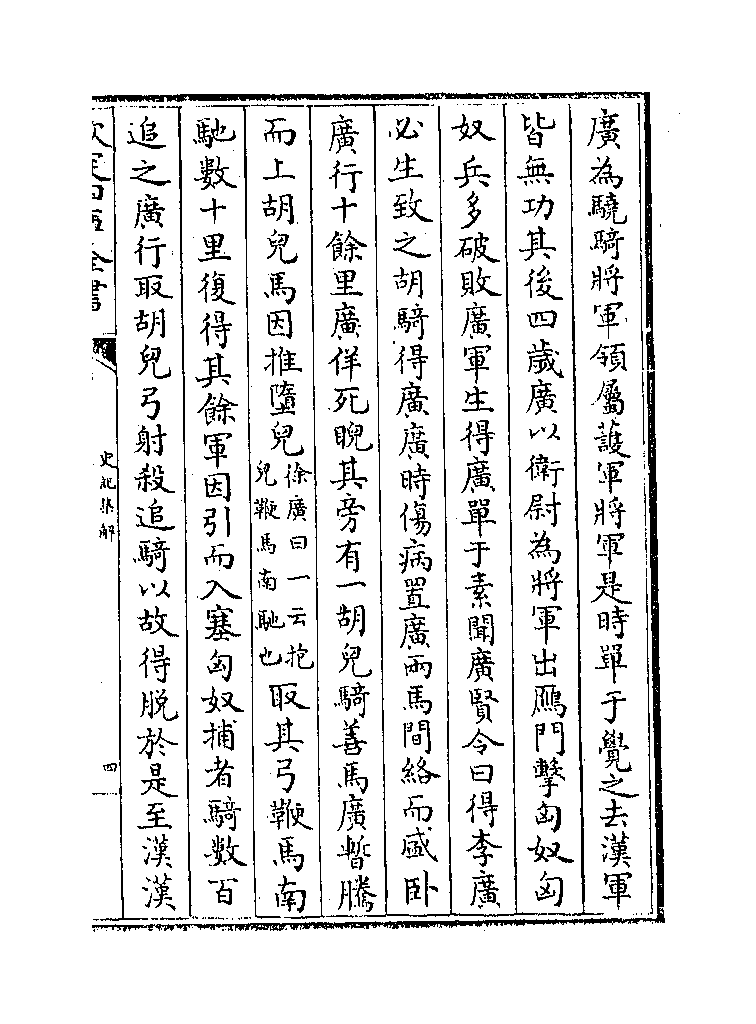 廣為驍騎將軍領屬護軍將軍是時單于覺之去漢軍
皆無功其後四歲廣以衛尉為將軍出鴈門擊匈奴匈
奴兵多破敗廣軍生得廣單于素聞廣賢令曰得李廣
必生致之胡騎得廣廣時傷病置廣兩馬間絡而盛卧
廣行十餘里廣佯死睨其旁有一胡兒騎善馬廣暫騰
而上胡兒馬因推墮兒徐廣曰一云抱兒鞭馬南馳也取其弓鞭馬南
馳數十里復得其餘軍因引而入塞匈奴捕者騎數百
追之廣行取胡兒弓射殺追騎以故得脱於是至漢漢
欽定四庫全書
史記集解
四